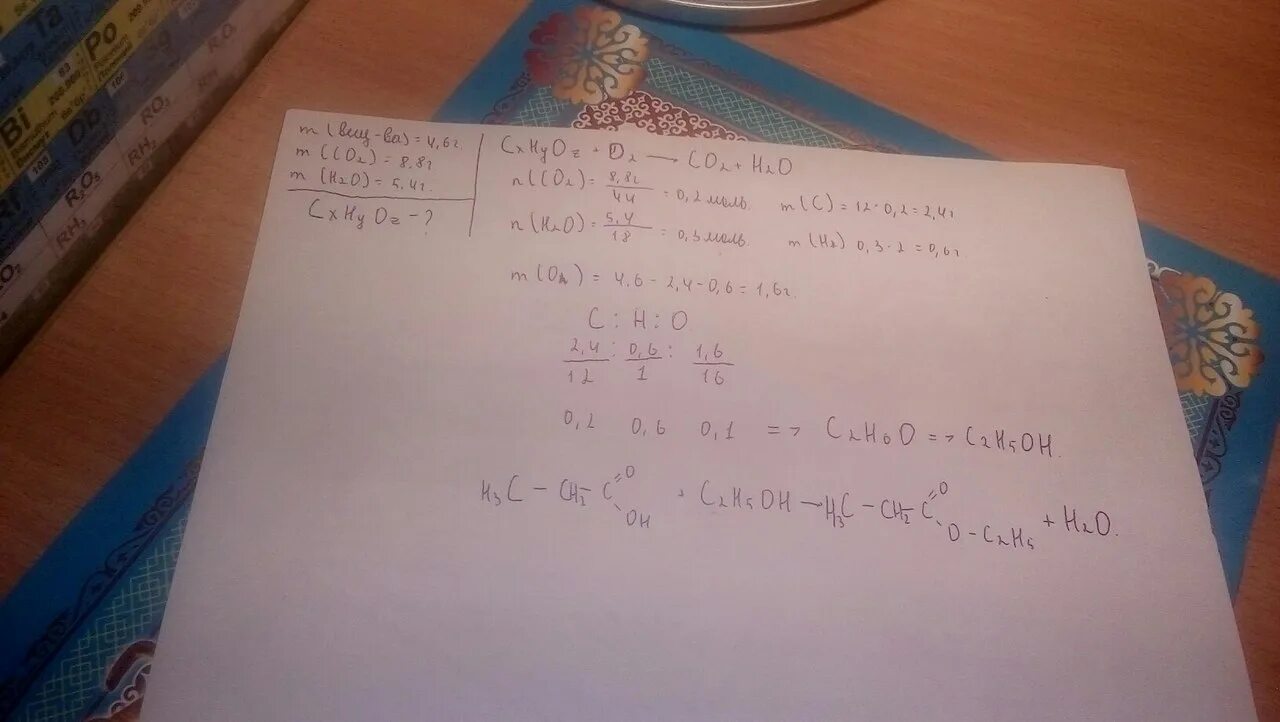 Ta
Po
Bi
Db
Rf
RO₂
RO₃
RH₂
R₂O₅
RH₃
m (вещ-ва) = 4,6г.
m (CO₂) = 8,8г
m (H₂O) = 5,4г.
CxHyOz - ?
CxHyOz + O₂ → CO₂ + H₂O
n (CO₂) = 8,8г / 44 = 0,2 моль. m (C) = 12 · 0,2 = 2,4г
n (H₂O) = 5,4 / 18 = 0,3 моль. m (H₂) 0,3 · 2 = 0,6г.
m (O₂) = 4,6 - 2,4 - 0,6 = 1,6г.
C : H : O
2,4 / 12 : 0,6 / 1 : 1,6 / 16
0,2 0,6 0,1 => C₂H₆O => C₂H₅OH.
H₃C - CH₂ - C (=O) OH + C₂H₅OH → H₃C - CH₂ - C (=O) O - C₂H₅ + H₂O.